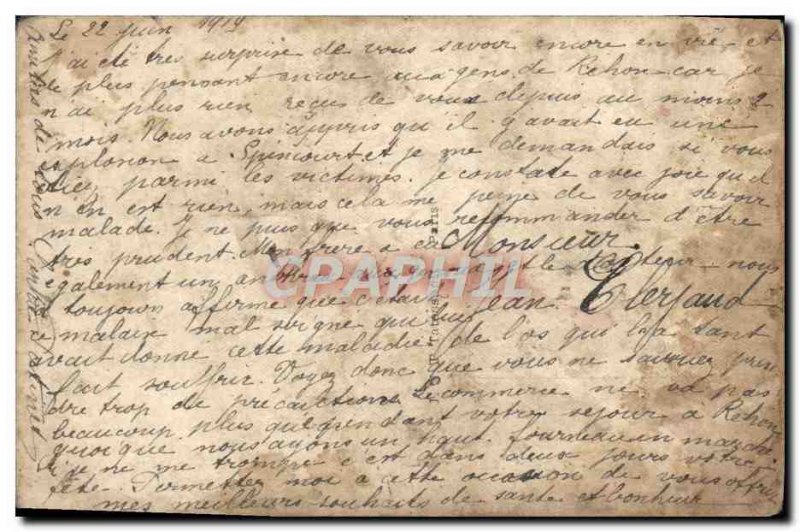 Le 22 juin 1919
J'ai été très surprise de vous savoir encore en vie, et
de plus pensant encore aux gens de Rehon car je
n'ai plus rien reçus de vous depuis au moins 2
mois. Nous avons appris qu'il y avait eu une
explosion a Spincourt et je me demandais si vous
étiez parmi les victimes. je constate avec joie qu'il
n'en est rien, mais cela me peine de vous savoir
malade. Je ne puis que vous recommander d'être
très prudent. Mon frère a
également un le docteur nous
a toujours affirmé que c'était
malaix mal soigné qui lui
avait donné cette maladie de l'os qui l'a tant
fait souffrir. Voyez donc que vous ne sauriez pren
dre trop de précautions. Le commerce ne va pas
beaucoup plus que pendant votre séjour a Rehon
quoique nous ayons un haut fourneau en marche.
si je ne me trompe c'est dans deux jours votre
fête. Permettez moi a cette occasion de vous offrir
mes meilleurs souhaits de santé et bonheur
Monsieur
Jean
Amitiés de tous
CPARAMA